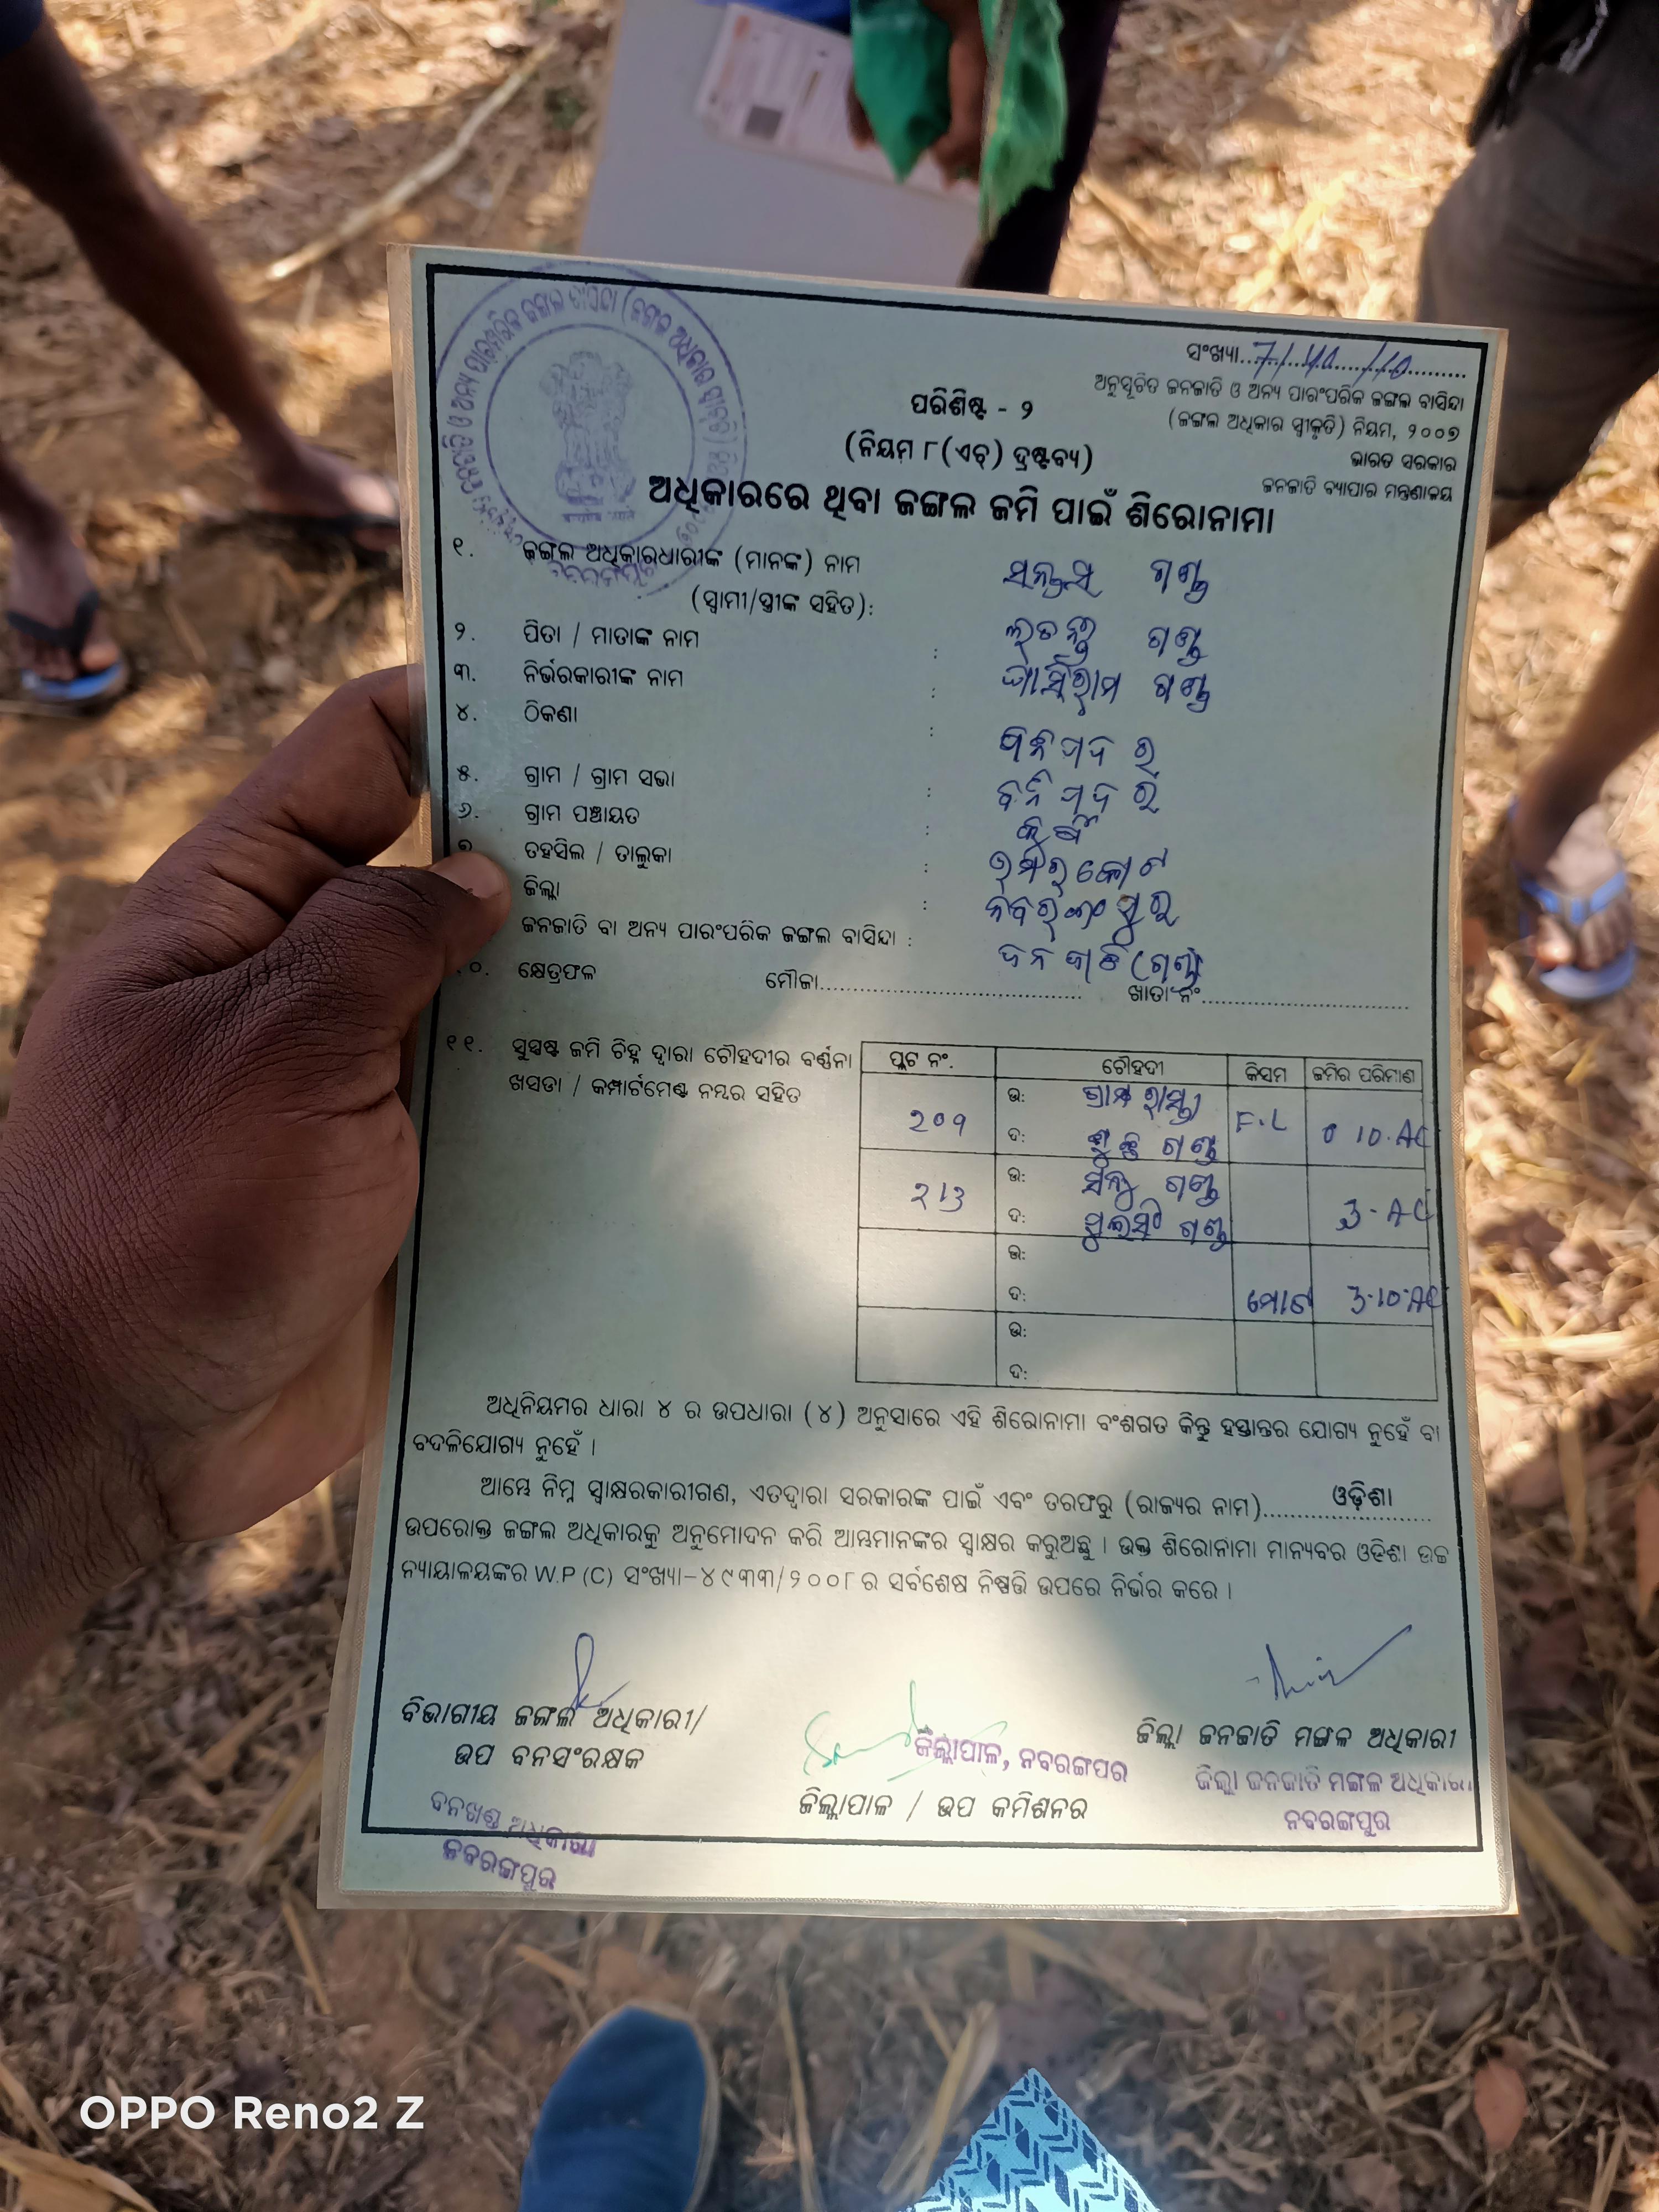 ସଂଖ୍ୟା
ଅନୁସୂଚିତ ଜନଜାତି ଓ ଅନ୍ୟ ପାରଂପରିକ ଜଙ୍ଗଲ ବାସିନ୍ଦା
(ଜଙ୍ଗଲ ଅଧିକାର ସ୍ୱୀକୃତି) ନିୟମ, ୨୦୦୭
ଭାରତ ସରକାର
ଜନଜାତି ବ୍ୟାପାର ମନ୍ତ୍ରଣାଳୟ
ପରିଶିଷ୍ଟ - ୨
(ନିୟମ ୮(ଏଚ୍) ଦ୍ରଷ୍ଟବ୍ୟ)
ଅଧିକାରରେ ଥିବା ଜଙ୍ଗଲ ଜମି ପାଇଁ ଶିରୋନାମା
୧. ଜଙ୍ଗଲ ଅଧିକାରଧାରୀଙ୍କ (ମାନଙ୍କ) ନାମ ଗଣ୍ଡ
(ସ୍ୱାମୀ/ସ୍ତ୍ରୀଙ୍କ ସହିତ):
୨. ପିତା / ମାତାଙ୍କ ନାମ : ଗଣ୍ଡ
୩. ନିର୍ଭରକାରୀଙ୍କ ନାମ : ଗଣ୍ଡ
୪. ଠିକଣା :
୫. ଗ୍ରାମ / ଗ୍ରାମ ସଭା :
୬. ଗ୍ରାମ ପଞ୍ଚାୟତ :
୭ ତହସିଲ / ତାଲୁକା : ଉମରକୋଟ
ଜିଲ୍ଲା : ନବରଙ୍ଗପୁର
ଜନଜାତି ବା ଅନ୍ୟ ପାରଂପରିକ ଜଙ୍ଗଲ ବାସିନ୍ଦା : ଜନଜାତି (ଗଣ୍ଡ)
୧୦. କ୍ଷେତ୍ରଫଳ ମୌଜା ଖାତା ନଂ
୧୧. ସୁସ୍ପଷ୍ଟ ଜମି ଚିହ୍ନ ଦ୍ୱାରା ଚୌହଦୀର ବର୍ଣ୍ଣନା
ଖସଡା / କମ୍ପାର୍ଟମେଣ୍ଟ ନମ୍ବର ସହିତ
ପ୍ଲଟ ନଂ. ଚୌହଦୀ କିସମ ଜମିର ପରିମାଣ
୨୦୨ ଉ: ଗ୍ରାମ ରାସ୍ତା F.L 0 10.AC
ଦ: ଗଣ୍ଡ
୨13 ଉ: ଗଣ୍ଡ 3-AC
ଦ: ଗଣ୍ଡ
ଉ:
ଦ: ମୋଟ 3.10.AC
ଉ:
ଦ:
ଅଧିନିୟମର ଧାରା ୪ ର ଉପଧାରା (୪) ଅନୁସାରେ ଏହି ଶିରୋନାମା ବଂଶଗତ କିନ୍ତୁ ହସ୍ତାନ୍ତର ଯୋଗ୍ୟ ନୁହେଁ ବା
ବଦଳିଯୋଗ୍ୟ ନୁହେଁ ।
ଆମ୍ଭେ ନିମ୍ନ ସ୍ୱାକ୍ଷରକାରୀଗଣ, ଏତଦ୍ୱାରା ସରକାରଙ୍କ ପାଇଁ ଏବଂ ତରଫରୁ (ରାଜ୍ୟର ନାମ) ଓଡ଼ିଶା
ଉପରୋକ୍ତ ଜଙ୍ଗଲ ଅଧିକାରକୁ ଅନୁମୋଦନ କରି ଆମ୍ଭମାନଙ୍କର ସ୍ୱାକ୍ଷର କରୁଅଛୁ । ଉକ୍ତ ଶିରୋନାମା ମାନ୍ୟବର ଓଡିଶା ଉଚ୍ଚ
ନ୍ୟାୟାଳୟଙ୍କର W.P (C) ସଂଖ୍ୟା-୪୯୩୩/୨୦୦୮ ର ସର୍ବଶେଷ ନିଷ୍ପତ୍ତି ଉପରେ ନିର୍ଭର କରେ ।
ବିଭାଗୀୟ ଜଙ୍ଗଲ ଅଧିକାରୀ/
ଉପ ବନସଂରକ୍ଷକ
ବନଖଣ୍ଡ ଅଧିକାରୀ
ନବରଙ୍ଗପୁର
ଜିଲ୍ଲାପାଳ, ନବରଙ୍ଗପୁର
ଜିଲ୍ଲାପାଳ / ଉପ କମିଶନର
ଜିଲ୍ଲା ଜନଜାତି ମଙ୍ଗଳ ଅଧିକାରୀ
ଜିଲ୍ଲା ଜନଜାତି ମଙ୍ଗଳ ଅଧିକାରୀ
ନବରଙ୍ଗପୁର
OPPO Reno2 Z